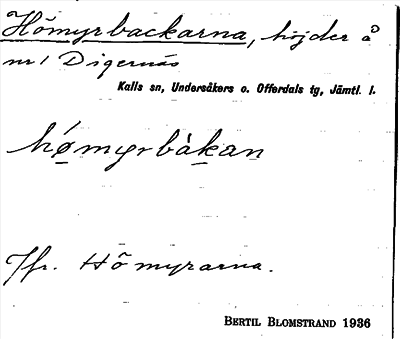 Hömyrbackarna, höjder å
nr 1 Digernäs
Kalls sn, Undersåkers o. Offerdals tg, Jämtl. l.
hǿmyrbàkan
Jfr. Hömyrarna.
BERTIL BLOMSTRAND 1936